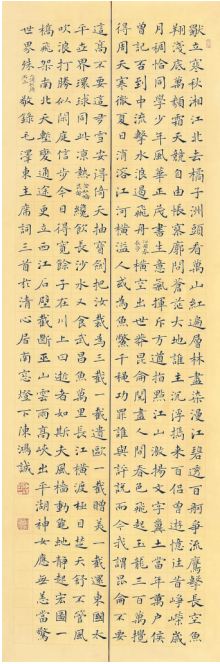 獨立寒秋湘江北去橘子洲頭看萬山紅遍層林盡染漫江碧透百舸爭流鷹擊長空魚
翔淺底萬類霜天競自由悵寥廓問蒼茫大地誰主沉浮攜來百侶曾遊憶往昔崢嶸歲
月稠恰同學少年風華正茂書生意氣揮斥方遒指點江山激揚文字糞土當年萬戶侯
曾記否到中流擊水浪遏飛舟橫空出世莽昆侖閱盡人間春色飛起玉龍三百萬攪
得周天寒徹夏日消溶江河橫溢人或為魚鱉千秋功罪誰與評說而今我謂昆侖不要
這高不要這多雪安得倚天抽寶劍把汝裁為三截一截遺歐一截贈美一截還東國太
平世界環球同此涼熱纔飲長沙水又食武昌魚萬里長江橫渡極目楚天舒不管風
吹浪打勝似閒庭信步今日得寬餘子在川上曰逝者如斯夫風檣動龜蛇靜起宏圖一
橋飛架南北天塹變通途更立西江石壁截斷巫山雲雨高峽出平湖神女應無恙當驚
世界殊敬錄毛澤東主席詞三首於清心居南窗燈下陳鴻誠